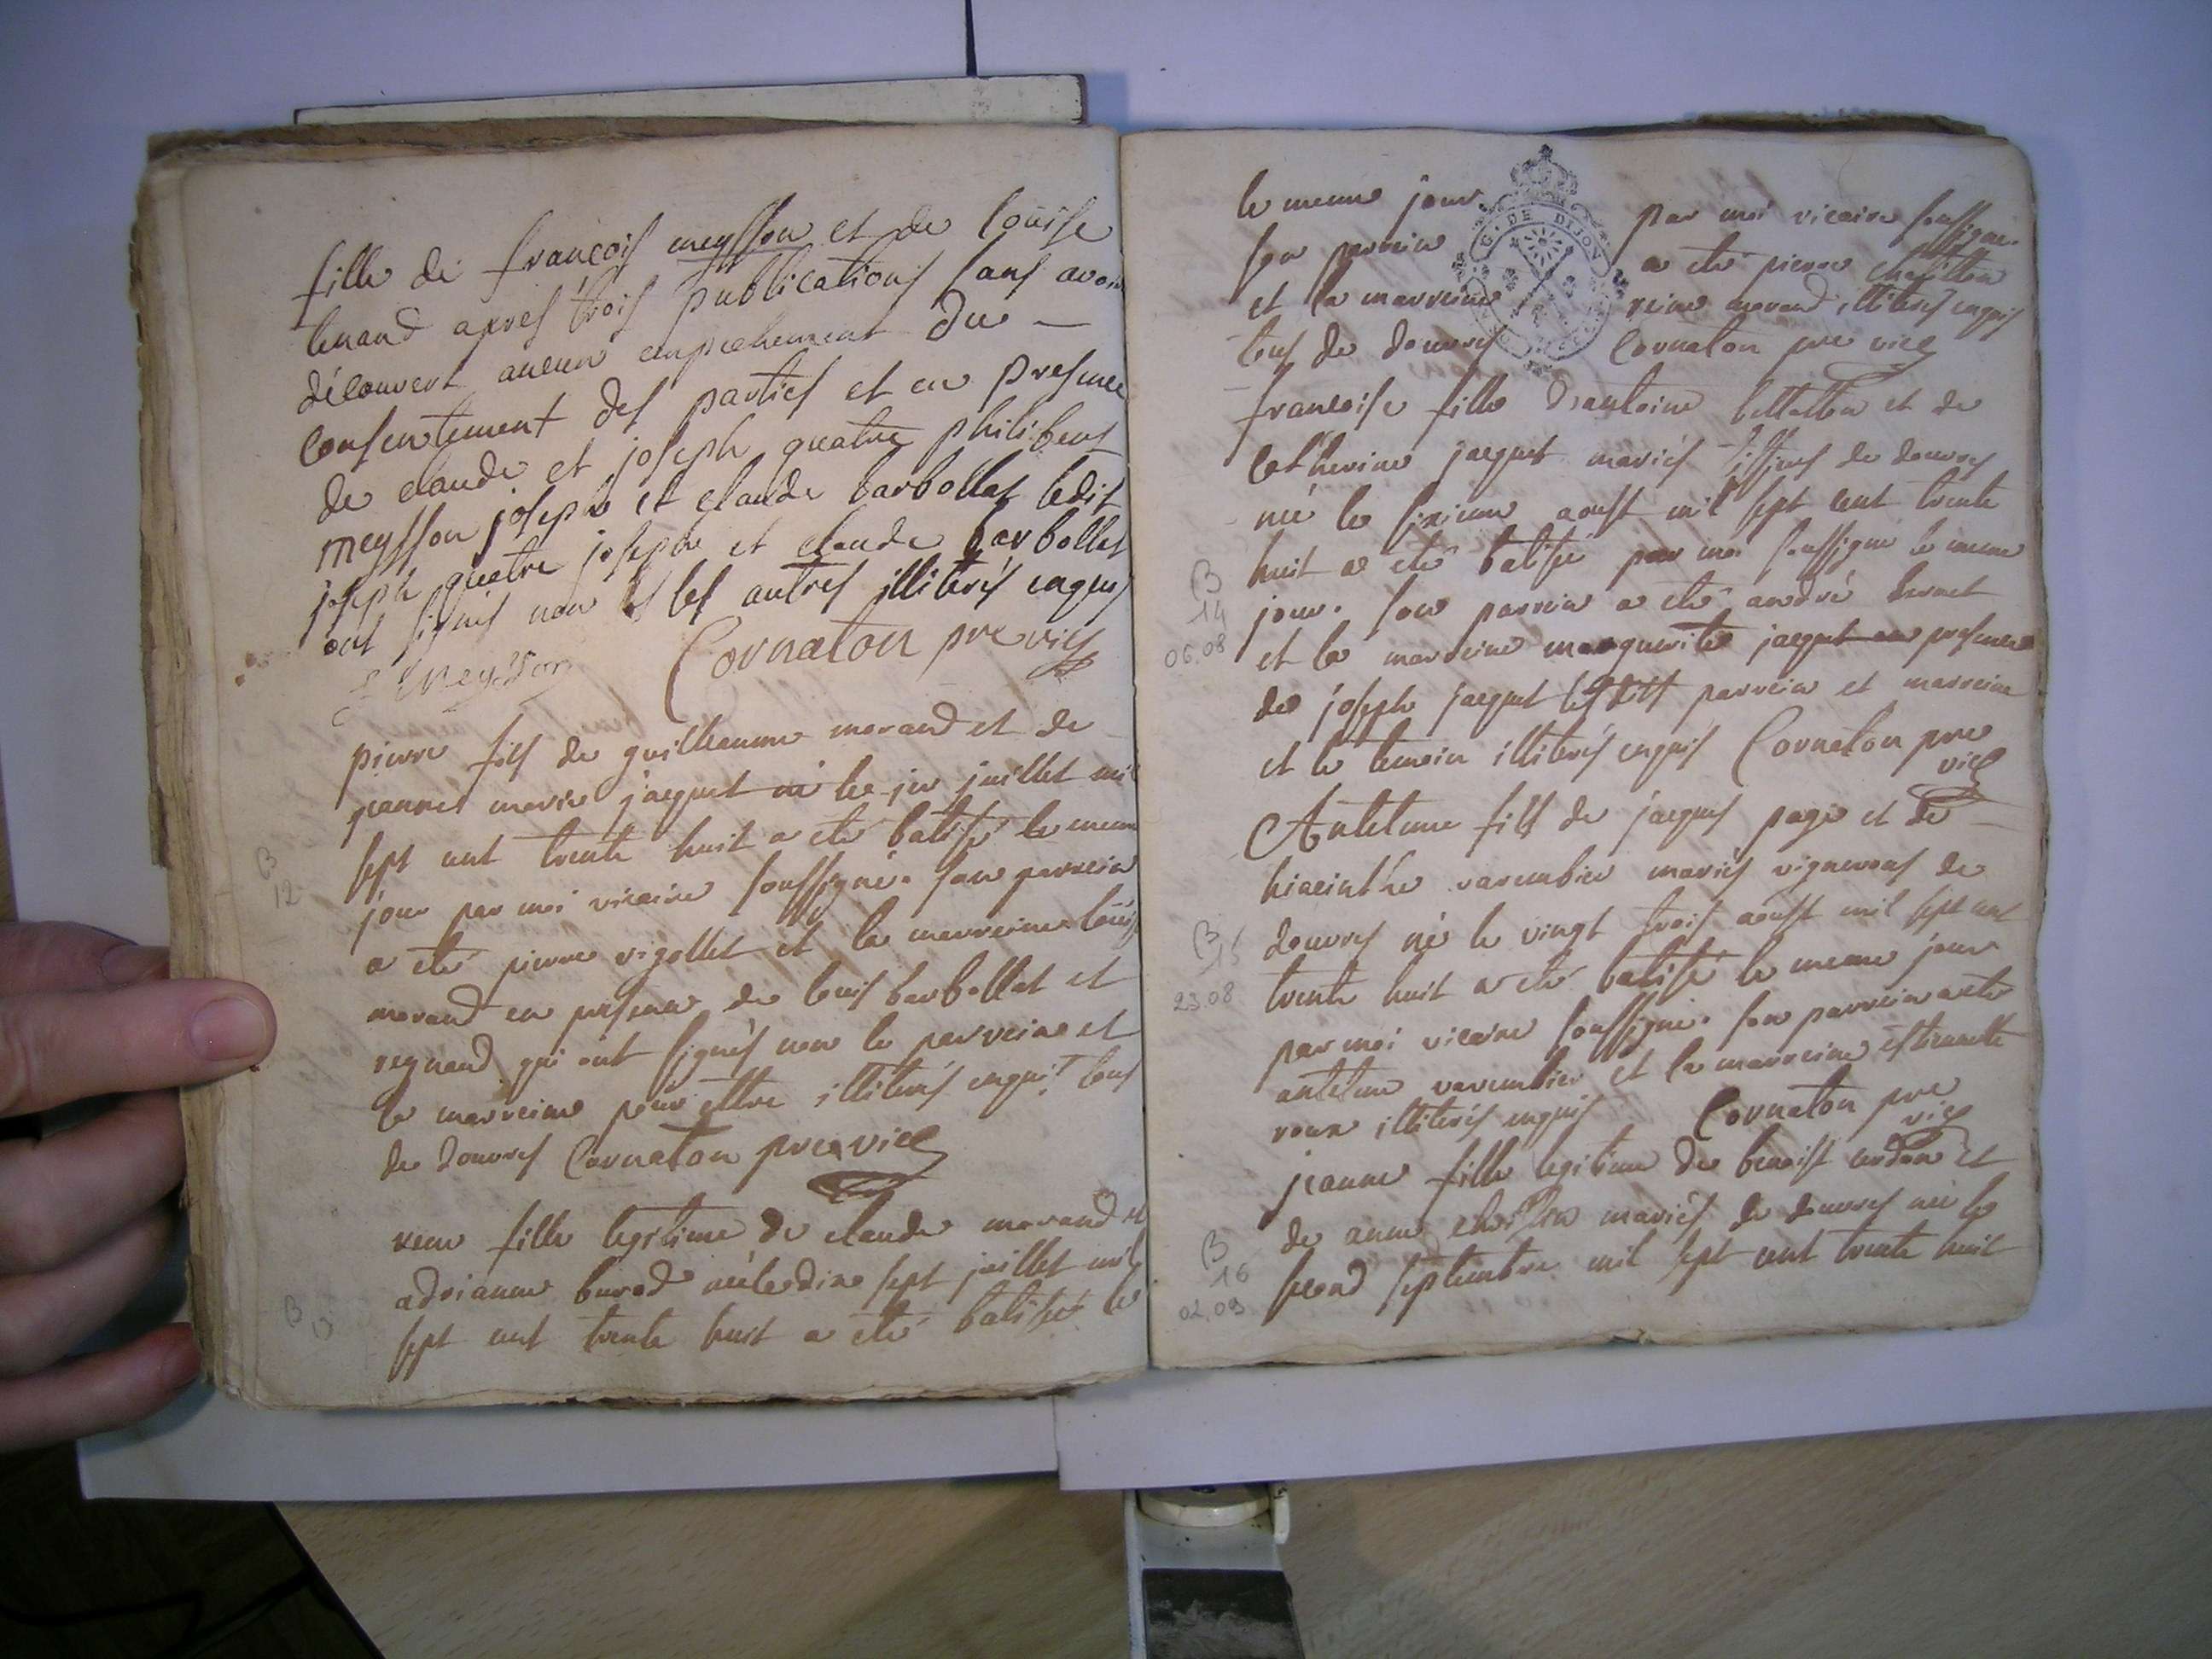 fille de françois meysson et de loüise
tenand apres trois publications sans avoir
découvert aucun empechement du
consentement des parties et en presence
de claude et joseph quatre philibert
meysson joseph et claude barbollat ledit
joseph quatre joseph et claude barbollat
ont signés non les autres illiterés enquis
Meysson Cornaton pre vic
pierre fils de guilleaume morand et de
jeanne marie jaquet né le juillet mil
sept cent trente huit a eté batisé le meme
jour par moi vicaire soussigné. son parrein
a eté pierre vigollet et la marreine loüise
morand en presence de louis barbollat et
reynaud qui ont signés non le parrein et
la marreine pour ettre illiterés enquis tous
de douvres Cornaton pre vic
B
12
reine fille legitime de claude morand et
adrianne burod née le dix sept juillet mil
sept cent trente huit a eté batisée le
B
le meme jour par moi vicaire soussigné.
son parrein a eté pierre chatillon
et la marreine reine morand illiterés enquis
tous de douvres Cornaton pre vic
G. DE DIJON
françoise fille d'antoine bellatton et de
Catherine jaquet mariés de douvres
née le sixieme aoust mil sept cent trente
huit a eté batisée par moi soussigné le meme
jour. son parrein a eté andré
et la marreine marguerite jaquet en presence
de joseph jaquet lesdits parrein et marreine
et le temoin illiterés enquis Cornaton pre
vic
B
14
06.08
Antelme fils de jaques page et de
hiacinthe varembier mariés vignerons de
douvres né le vingt trois aoust mil sept cent
trente huit a eté batisé le meme jour
par moi vicaire soussigné. son parrein a eté
antelme varembier et la marreine estiennette
roux illiterés enquis Cornaton pre
vic
B
15
23.08
jeanne fille legitime de benoist cerdon et
de anne mariés de douvres née le
second septembre mil sept cent trente huit
B
16
02.09